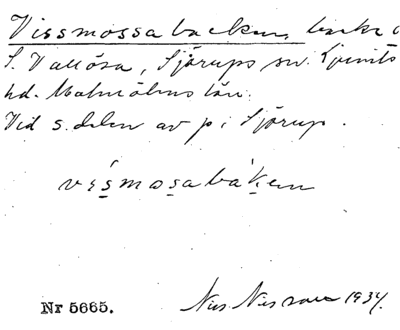 Vissmossabacken, backe i
S. Vallösa, Sjörups sn. Ljunits
hd. Malmöhus län.
Vid s. delen av p i Sjörup.
vismosabákem
Nr 5665.
Nils Nilsson 1934.